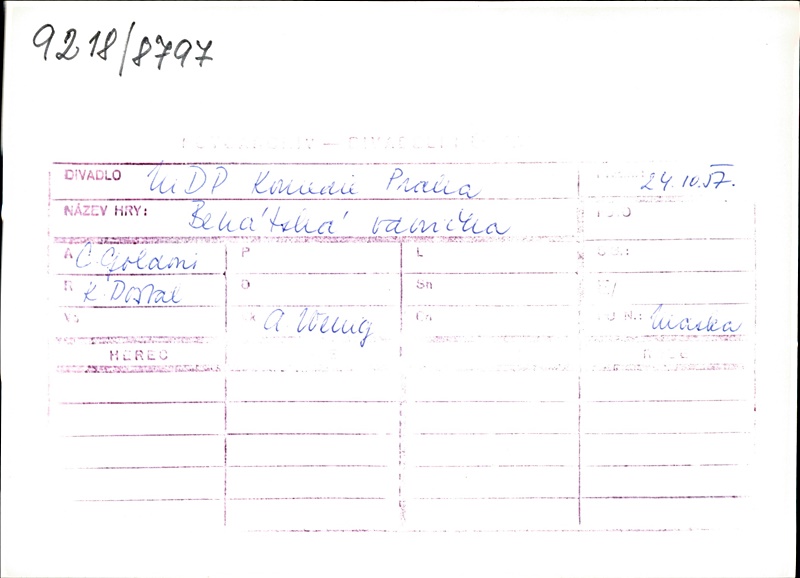 9218/8797
DIVADLO MDP Komedie Praha 24.10.57.
NÁZEV HRY: Benátská vdovička
A C Goldoni P L
R K Dostal D Sn
A Wenig Maska
HEREC